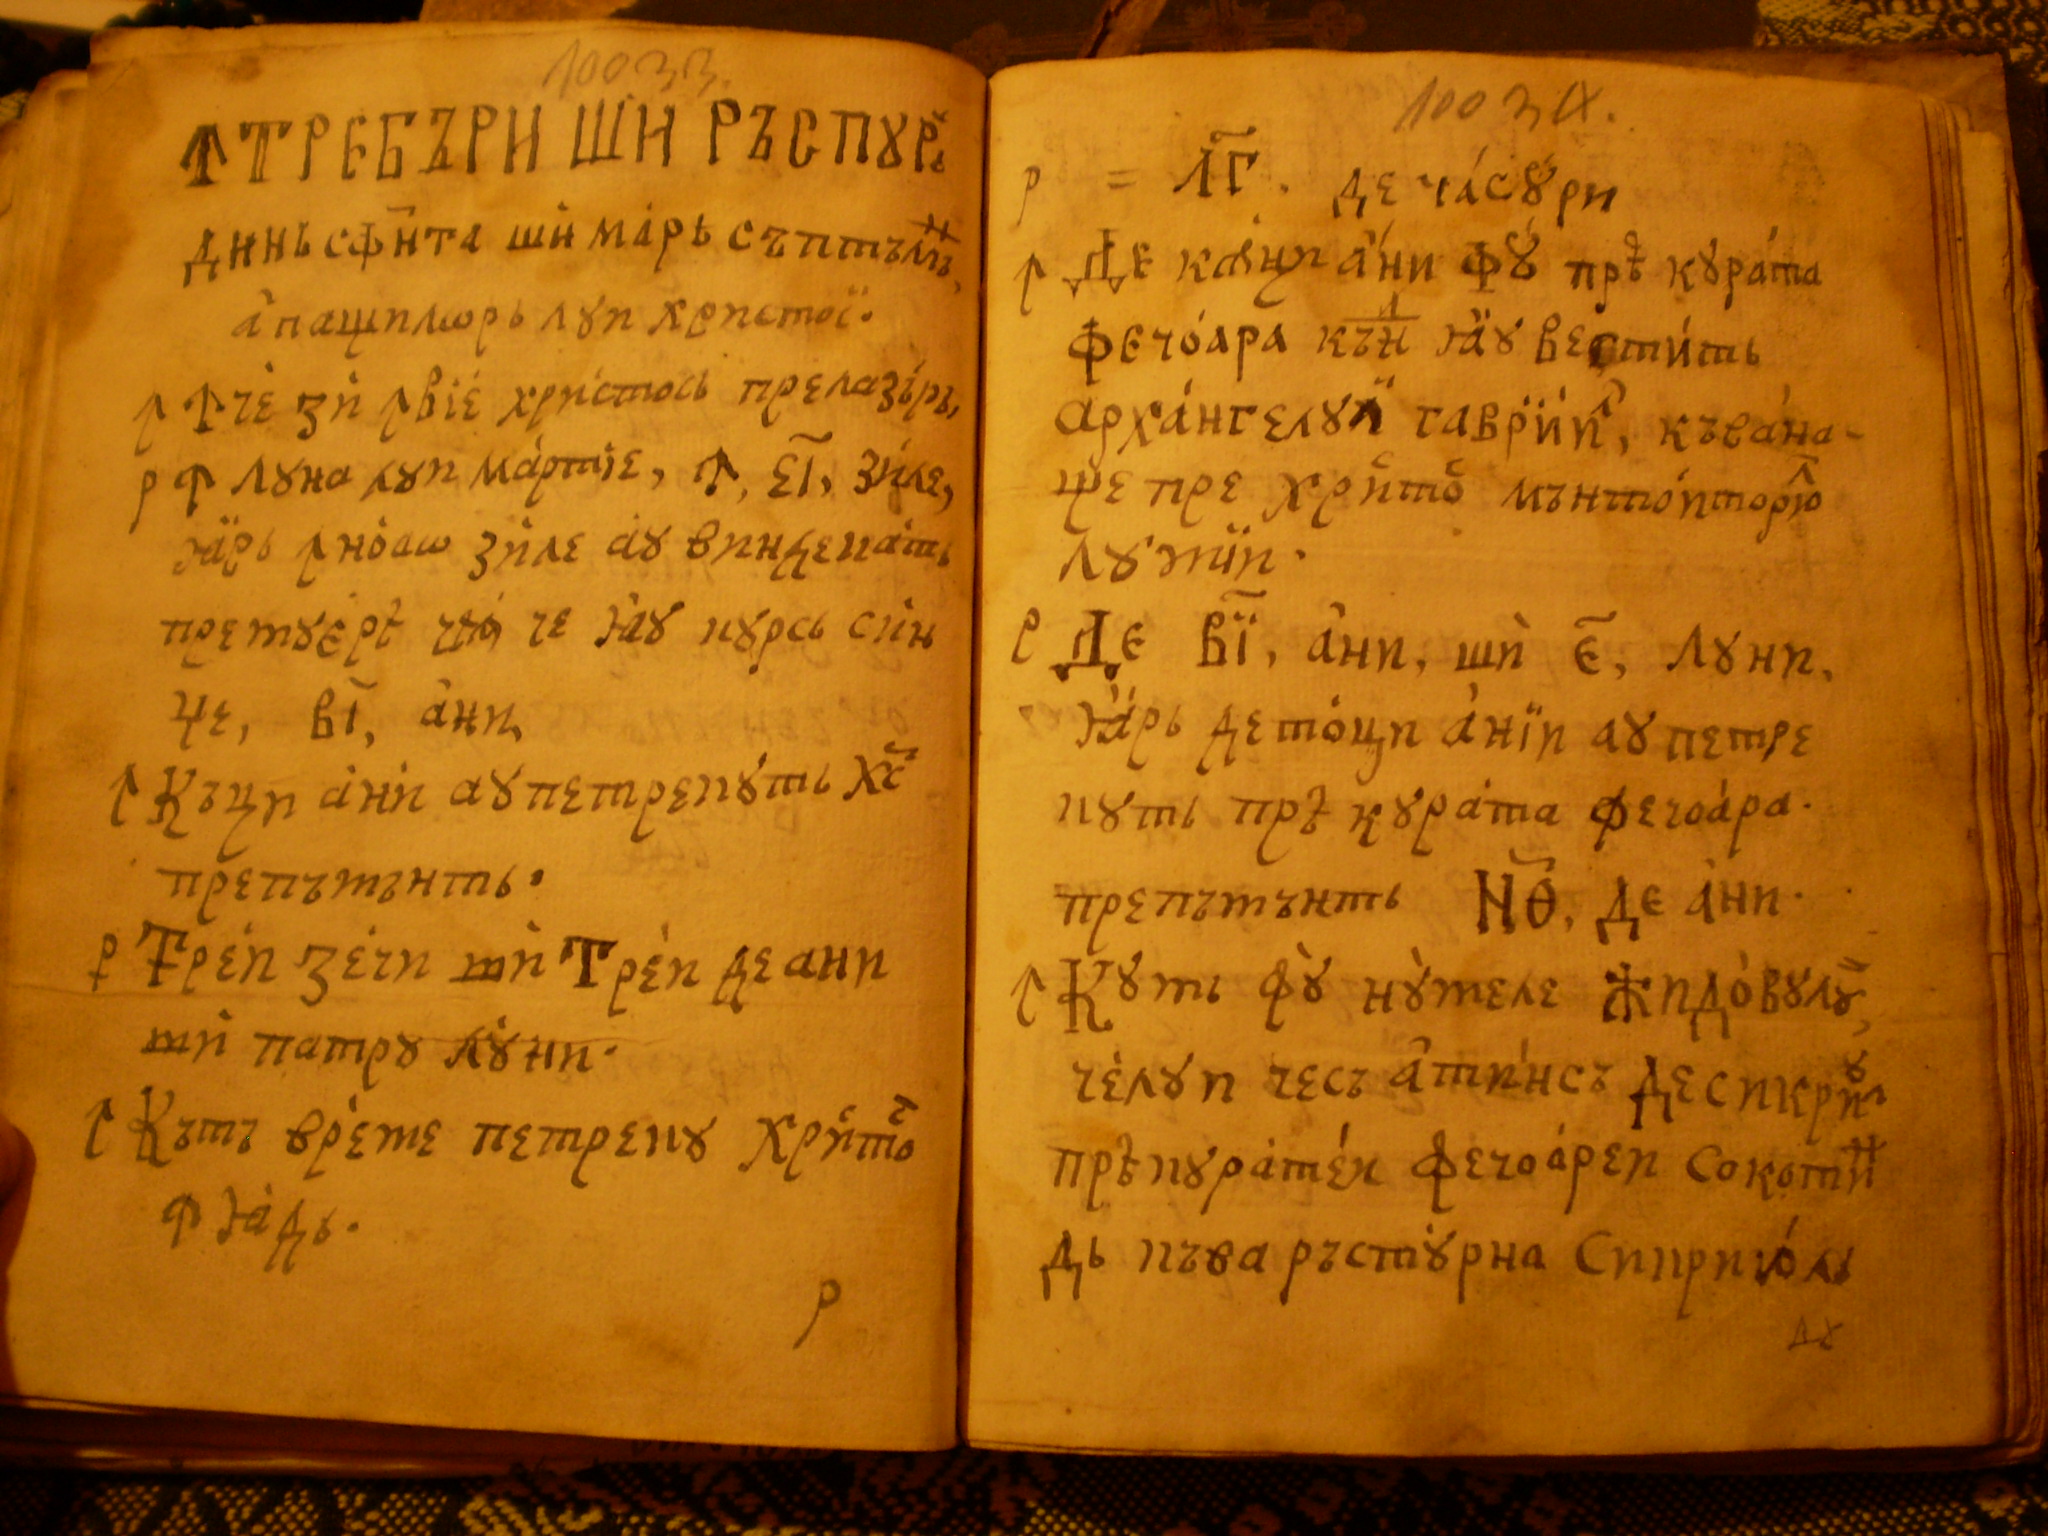 10033.
ꙞТРЕБЪРИ ШИ РЪСПУР҃
дин сфи҃нта ши маре съптъмѫ҃нъ,
а пащилѡрь луи христоӥ.
ꙟ Ꙟ че зи ꙟвїе христось прелазъръ,
р Ꙟ луна луи мартїе, ꙟ, є҃і, зиле,
ꙗрь ꙟ ноаѡ зиле ау виндекать
пре мує́рѣ че ꙗу курсь син
џе, в҃і, ани,
ꙟ Къци ани ау петрекуть хс҃
препъмънть.
р Трєи зєчи ши Трєи де ани
ши патру луни.
ꙟ Кътъ врѣме петреку Хри҃то
ꙟ ꙗдь.
р
10034.
р = Л҃Г. де часури
ꙟ Де кѫци ани фꙋ прѣ курата
фечоара кънд ꙗу вестить
архангелул гаврїил, къва на-
ще пре хри҃то мънтоиторю҃л
лумїи.
р Де в҃і, ани, ши є҃, луни,
ꙗрь де тоци анїи ау петре
куть прѣ курата фечоара.
препъмънть Н҃Ѳ, де ани.
ꙟ Куть фу нумеле Жидовулуи,
челуи чесъ атинсъ десикриул
прѣкуратей фечоарей сокотин
дь къва ръстурна Сикриюл
ду